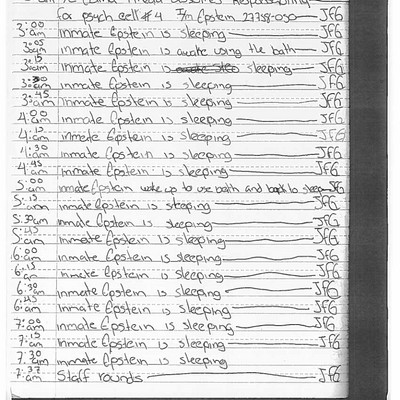 for psych cell #4 I/m Epstein 77318-050 JFG
3:00 am Inmate Epstein is sleeping JFG
3:05 am Inmate Epstein is awake using the bath JFG
3:15 am Inmate Epstein is sleeping JFG
3:30 am Inmate Epstein is sleeping JFG
3:45 am Inmate Epstein is sleeping JFG
4:00 am Inmate Epstein is sleeping JFG
4:15 am Inmate Epstein is sleeping JFG
4:30 am Inmate Epstein is sleeping JFG
4:45 am Inmate Epstein is sleeping JFG
5:00 am Inmate Epstein woke up to use bath and back to sleep JFG
5:15 am Inmate Epstein is sleeping JFG
5:30 am Inmate Epstein is sleeping JFG
5:45 am Inmate Epstein is sleeping JFG
6:00 am Inmate Epstein is sleeping JFG
6:15 am Inmate Epstein is sleeping JFG
6:30 am Inmate Epstein is sleeping JFG
6:45 am Inmate Epstein is sleeping JFG
7:00 am Inmate Epstein is sleeping JFG
7:15 am Inmate Epstein is sleeping JFG
7:30 am Inmate Epstein is sleeping
7:37 am Staff rounds JFG